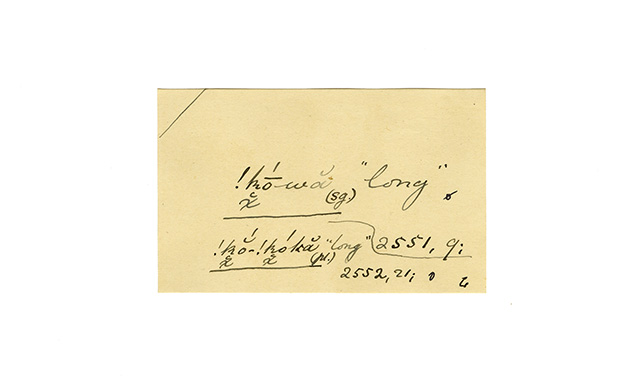 !kó-wă (sg.) "long"
!kó-!kókă (pl.) "long" 2551, 9;
2552, 21;